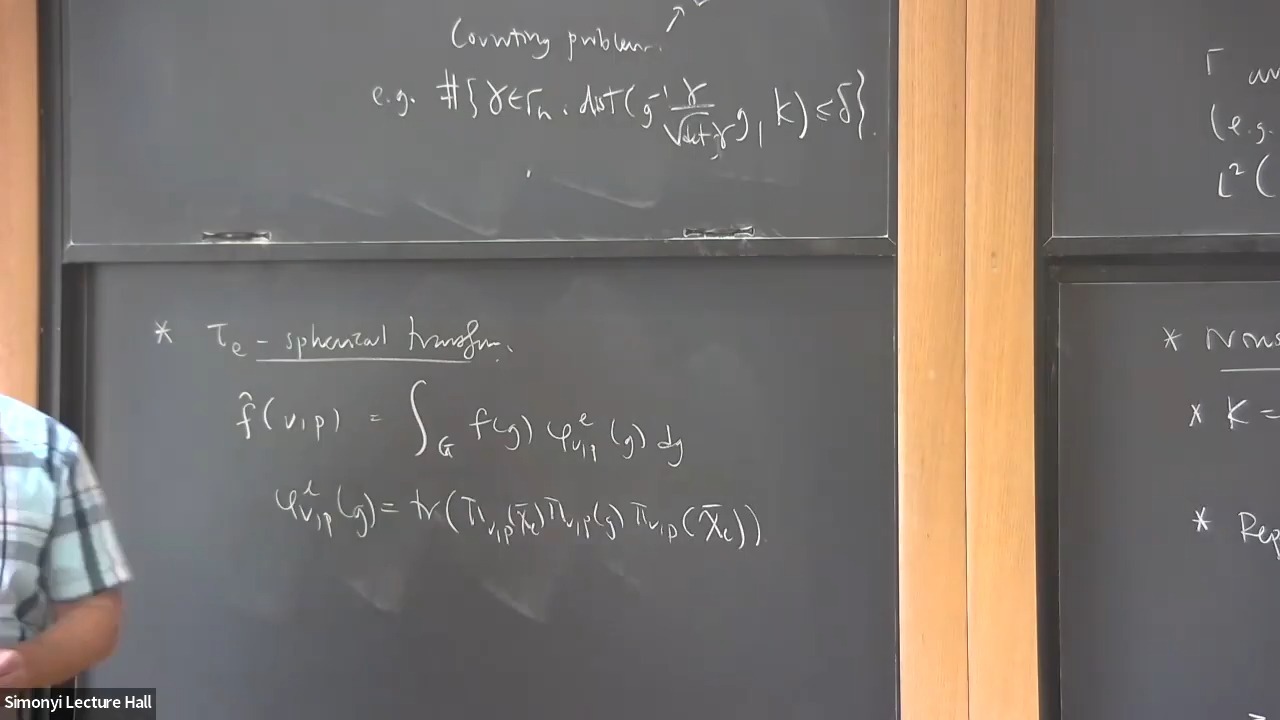 Counting problem.
e.g. #{γ∈Γₙ : dist(g⁻¹ γ/√det γ g, K) ≤ δ}.
* τ_ℓ - spherical transfm.
f̂(ν,p) = ∫_G f(g) φ^ℓ_{ν,p}(g) dg
φ^ℓ_{ν,p}(g) = tr(π_{ν,p}(χ̄_ℓ) π_{ν,p}(g) π_{ν,p}(χ̄_ℓ)).
Γ
(e.g.
L²(
*
* K =
* Rep
Simonyi Lecture Hall